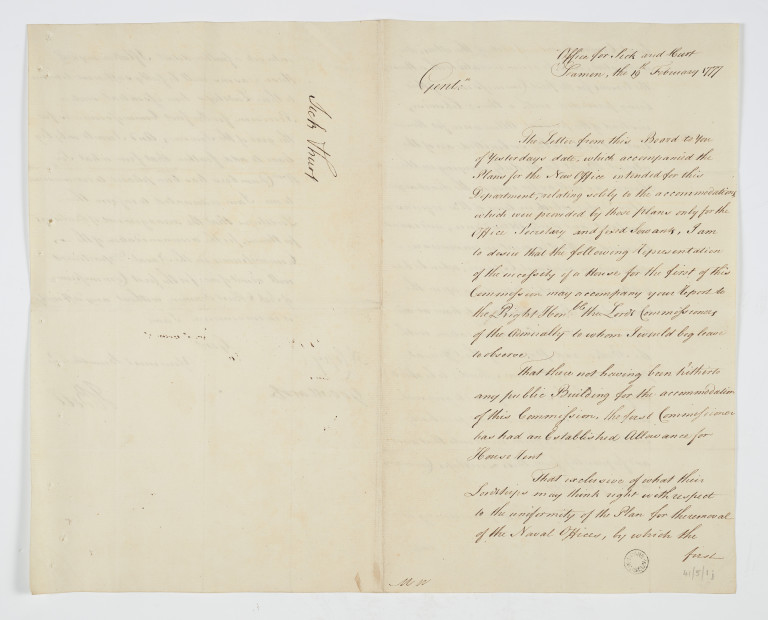 Office for Sick and Hurt
the 19th February 1777
Gent.n
The Letter from this Board to You
of Yesterdays date, which accompanied the
Plans for the New Office intended for this
Department, relating solely to the accommodations
which were provided by those Plans only for the
Office Secretary and fixed Servants, I am
to desire that the following Representation
of the necessity of a House for the first of this
Commission may accompany your Report to
the Right Honble the Lords Commissioners
of the Admiralty to whom I would beg leave
to observe
That there not having been hitherto
any public Building for the accommodation
of this Commission, the first Commissioner
has had an Established Allowance for
House rent
That exclusive of what their
Lordships may think right with respect
to the uniformity of the Plan for the removal
of the Naval Offices, by which the
first
Sick & hurt
41/5/1j